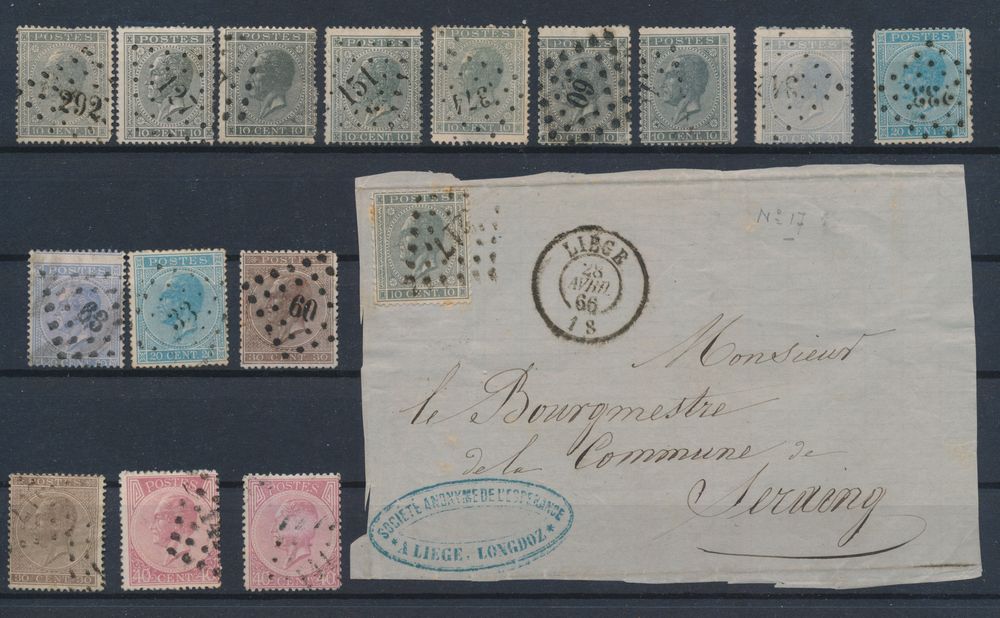 POSTES POSTES POSTES POSTES POSTES POSTES POSTES POSTES
292 12 151 374 60 233
10 CENT 10 10 CENT 10 10 CENT 10 10 CENT 10 10 CENT 10 10 CENT 10 10 CENT 10 20 CENT 20
POSTES POSTES POSTES
63 33 60
20 CENT 20 30 CENT 30
POSTES
217
10 CENT 10
Nº 17
LIÈGE
28
AVRIL
66
1 S
Monsieur
le Bourgmestre
de la Commune de
Seraing
SOCIÉTÉ ANONYME DE L'ESPERANCE
* A LIEGE. LONGDOZ *
POSTES POSTES
30 CENT 30 40 CENT 40 40 CENT 40